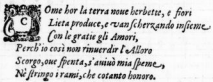 COme hor la terra noue herbette, e fiori
Lieta produce, e van scherzando insieme
Con le gratie gli Amori,
Perch'io così non rinuerdir l'Alloro
Scorgo, oue spenta, s'auiuò mia speme,
Nè stringo i rami, che cotanto honoro.